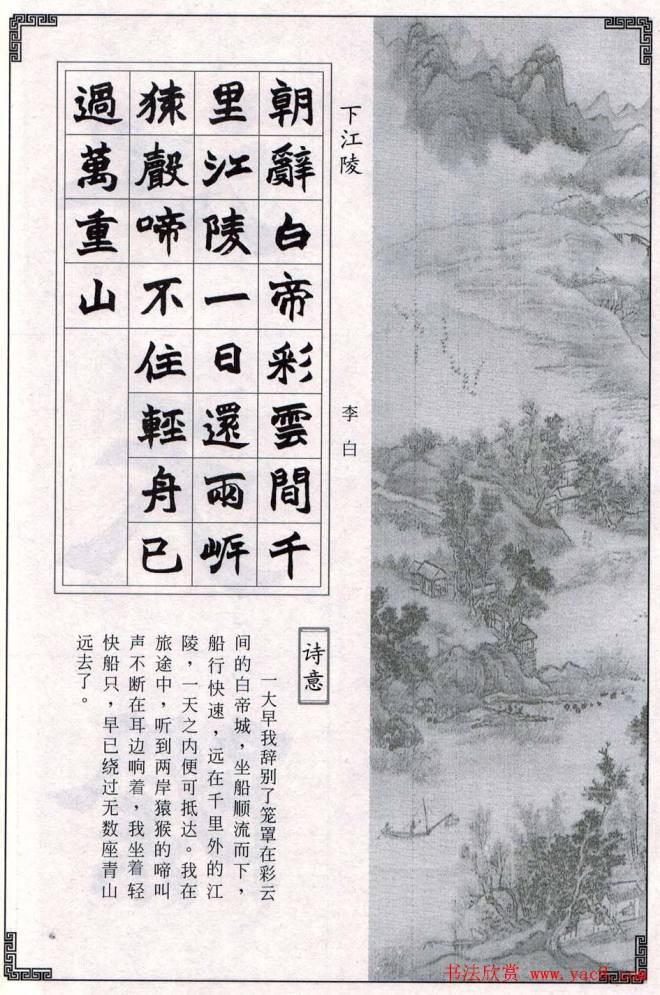 下江陵
李白
朝辭白帝彩雲間千
里江陵一日還兩岸
猿聲啼不住輕舟已
過萬重山
诗意
一大早我辞别了笼罩在彩云
间的白帝城，坐船顺流而下，
船行快速，远在千里外的江
陵，一天之内便可抵达。我在
旅途中，听到两岸猿猴的啼叫
声不断在耳边响着，我坐着轻
快船只，早已绕过无数座青山
远去了。
书法欣赏 www.yac8.com